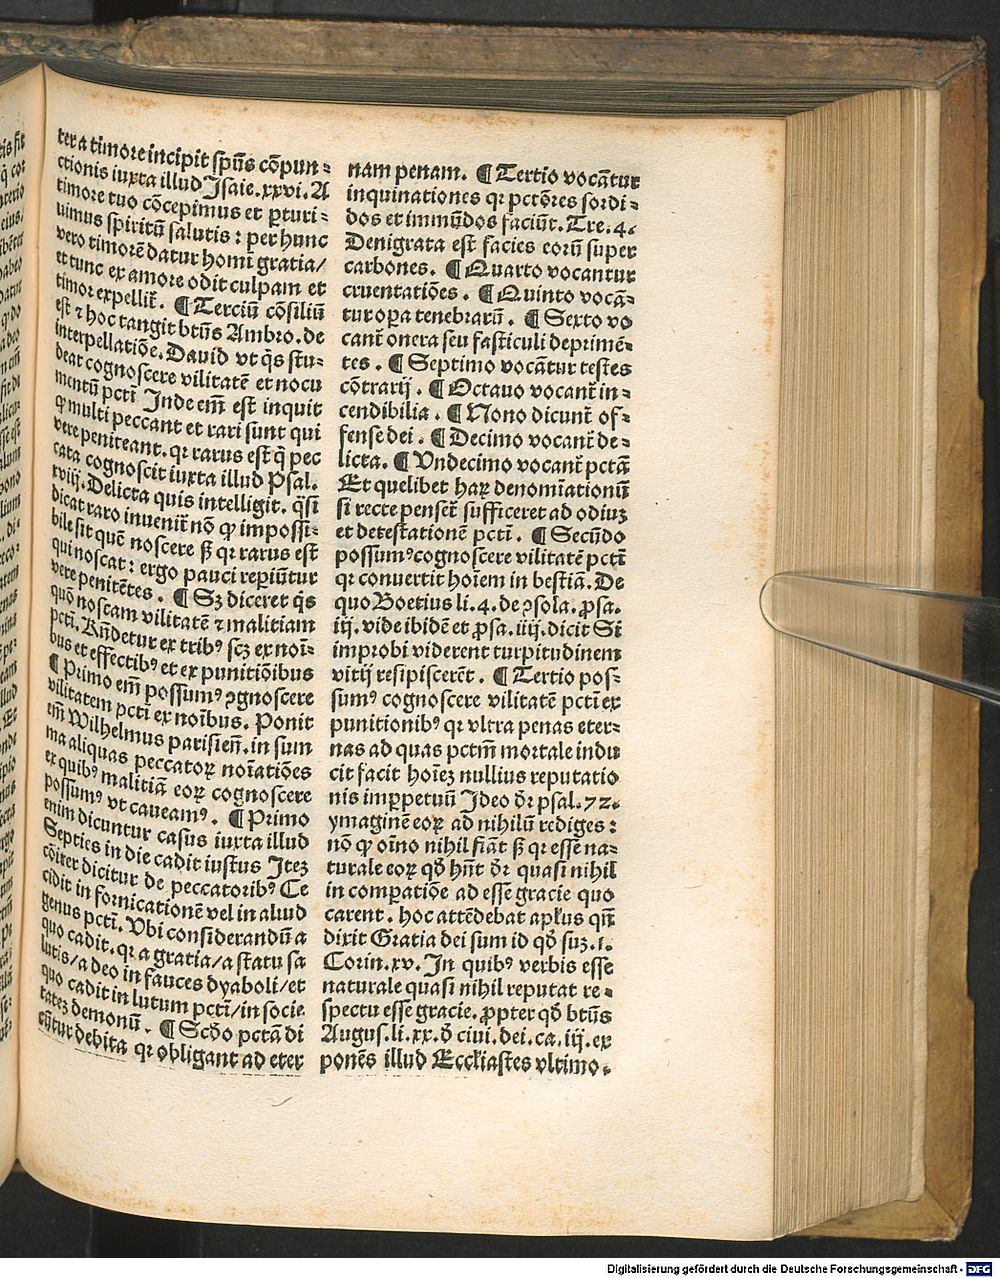 ter a timore incipit spūs cōpun-
ctionis iuxta illud Isaie.xxvi. A
timore tuo cōcepimus et pturi-
uimus spiritū salutis: per hunc
vero timorē datur homī gratia/
et tunc ex amore odit culpam et
timor expellit̄. ¶ Terciū cōsiliū
est ⁊ hoc tangit btūs Ambro. de
interpellatiōe. Dauid vt q̄s stu-
deat cognoscere vilitatē et nocu
mentū pctī Inde em̄ est inquit
ꝙ multi peccant et rari sunt qui
vere peniteant. qꝛ rarus est q̄ pec
cata cognoscit iuxta illud Psal.
xviij. Delicta quis intelligit. q̄si
dicat raro inuenit̄ nō ꝙ impossi-
bile sit quē noscere sꝫ qꝛ rarus est
qui noscat: ergo pauci repiūtur
vere penitētes. ¶ Sꝫ diceret q̄s
quō noscam vilitatē ⁊ malitiam
pctī. Rn̄detur ex tribꝰ scꝫ ex noī-
bus et effectibꝰ et ex punitiōibus
¶ Primo em̄ possumꝰ ꝯgnoscere
vilitatem pctī ex noībus. Ponit
em̄ Wilhelmus parisien̄. in sum
ma aliquas peccatoꝝ noīatiōes
ex quibꝰ malitiā eoꝝ cognoscere
possumꝰ vt caueamꝰ. ¶ Primo
enim dicuntur casus iuxta illud
Septies in die cadit iustus Itez
cōiter dicitur de peccatoribꝰ Ce
cidit in fornicationē vel in aliud
genus pctī. Vbi considerandū a
quo cadit. qꝛ a gratia/a statu sa
lutis/a deo in fauces dyaboli/et
quo cadit in lutum pctī/in socie
tatez demonū. ¶ Scdo pctā di
cūtur debita qꝛ obligant ad eter
nam penam. ¶ Tertio vocātur
inquinationes qꝛ pctōres sordi-
dos et immūdos faciūt. Tre.4.
Denigrata est facies eorū super
carbones. ¶ Quarto vocantur
cruentatiōes. ¶ Quinto vocā-
tur oꝑa tenebrarū. ¶ Sexto vo
cant̄ onera seu fasticuli deprimē-
tes. ¶ Septimo vocātur testes
cōtrarij. ¶ Octauo vocant̄ in-
cendibilia. ¶ Nono dicunt̄ of-
fense dei. ¶ Decimo vocant̄ de-
licta. ¶ Undecimo vocant̄ pctā
Et quelibet haꝝ denomīationū
si recte penset̄ sufficeret ad odiuz
et detestationē pctī. ¶ Secūdo
possumꝰ cognoscere vilitatē pctī
qꝛ conuertit hoīem in bestiā. De
quo Boetius li.4. de ꝯsola. ꝓsa.
iij. vide ibidē et ꝓsa. iiij. dicit Si
improbi viderent turpitudinem
vitij resipiscerēt. ¶ Tertio pos-
sumꝰ cognoscere vilitatē pctī ex
punitionibꝰ qꝛ vltra penas eter-
nas ad quas pctm̄ mortale indu
cit facit hoīez nullius reputatio
nis imꝑpetuū Ideo dr̄ psal.72.
ymaginē eoꝝ ad nihilū rediges:
nō ꝙ oīno nihil fiāt sꝫ qꝛ esse na-
turale eoꝝ qd̄ hn̄t dr̄ quasi nihil
in compatiōe ad esse gracie quo
carent. hoc attēdebat apl̄us qn̄
dixit Gratia dei sum id qd̄ suz.1.
Corin.xv. In quibꝰ verbis esse
naturale quasi nihil reputat re-
spectu esse gracie. ꝓpter qd̄ btūs
Augus.li.xx.d̄ ciui.dei.ca.iij.ex
ponēs illud Ecclīastes vltimo.
Digitalisierung gefördert durch die Deutsche Forschungsgemeinschaft - DFG